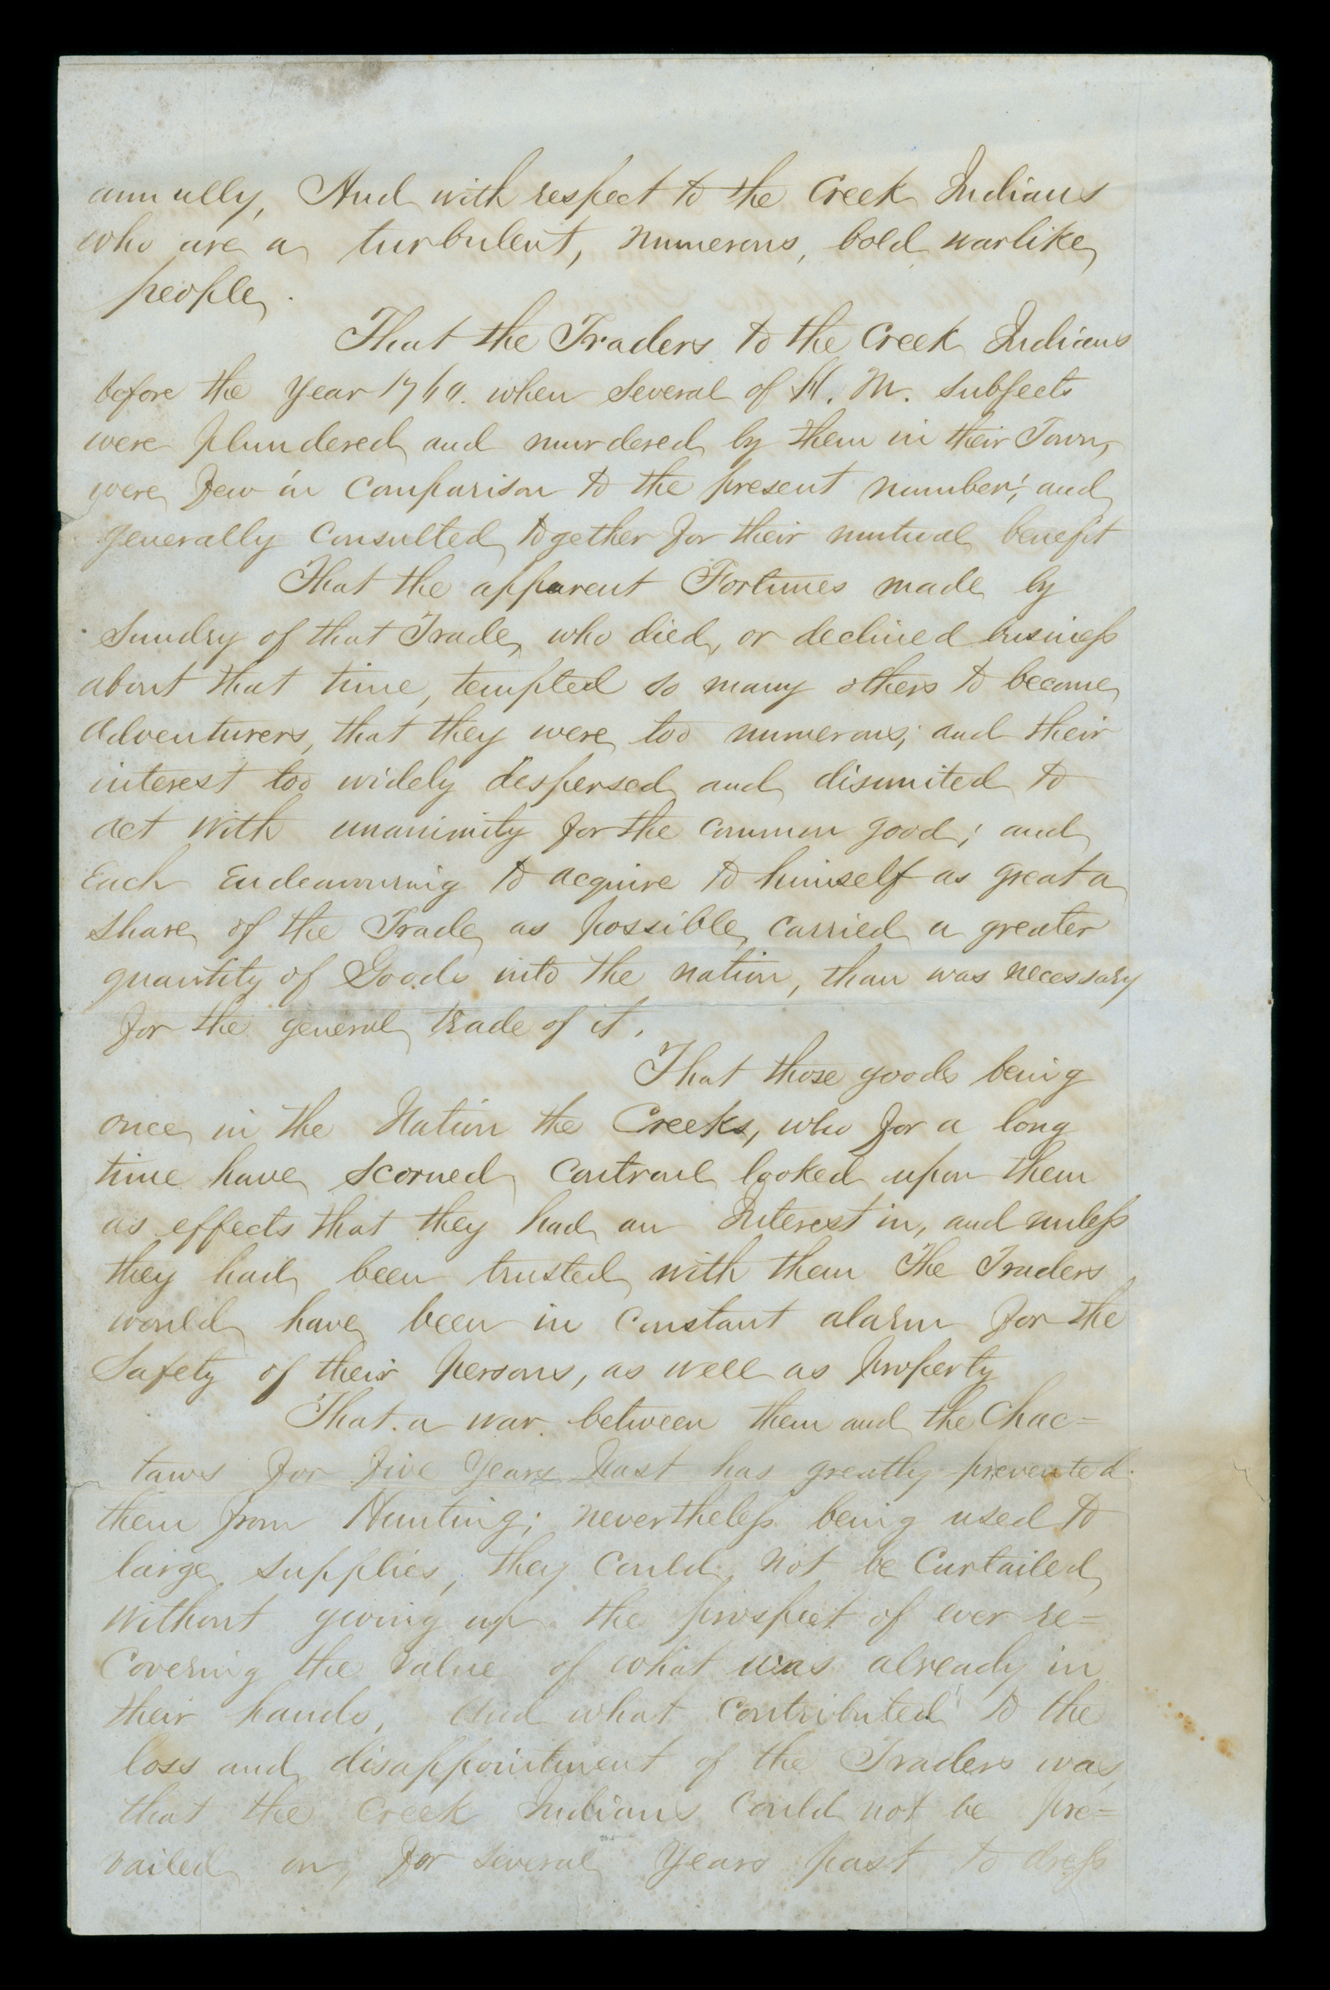 annually, And with respect to the Creek Indians
who are a turbulent, numerous, bold warlike
people.
That the Traders to the Creek Indians
before the Year 1760. when Several of H. M. subjects
were plundered and murdered by them in their Town,
were few in Comparison to the present number; and
generally Consulted together for their mutual benefit
That the apparent Fortunes made by
Sundry of that Trade, who died, or declined business
about that time, tempted so many others to become
Adventurers, that they were too numerous; and their
interest too widely despersed and disunited to
act With unanimity for the common good; and
Each Endeavouring to acquire to himself as great a
share of the Trade as possible, carried a greater
quantity of Goods into the nation, than was necessary
for the general trade of it.
That those goods being
once in the Nation the Creeks, who for a long
time have scorned controul looked upon them
as effects that they had an Interest in, and unless
they had been trusted with them The Traders
would have been in Constant alarm for the
Safety of their Persons, as well as Property
That a war between them and the Chac=
taws for five Years Past has greatly prevented
them from Hunting; nevertheless being used to
large supplies, they Could not be Curtailed
Without giving up the prospect of ever re=
Covering the value of what was already in
their hands, And what Contributed to the
loss and disappointment of the Traders was
that the Creek Indians Could not be pre=
vailed on, for several Years past to dress